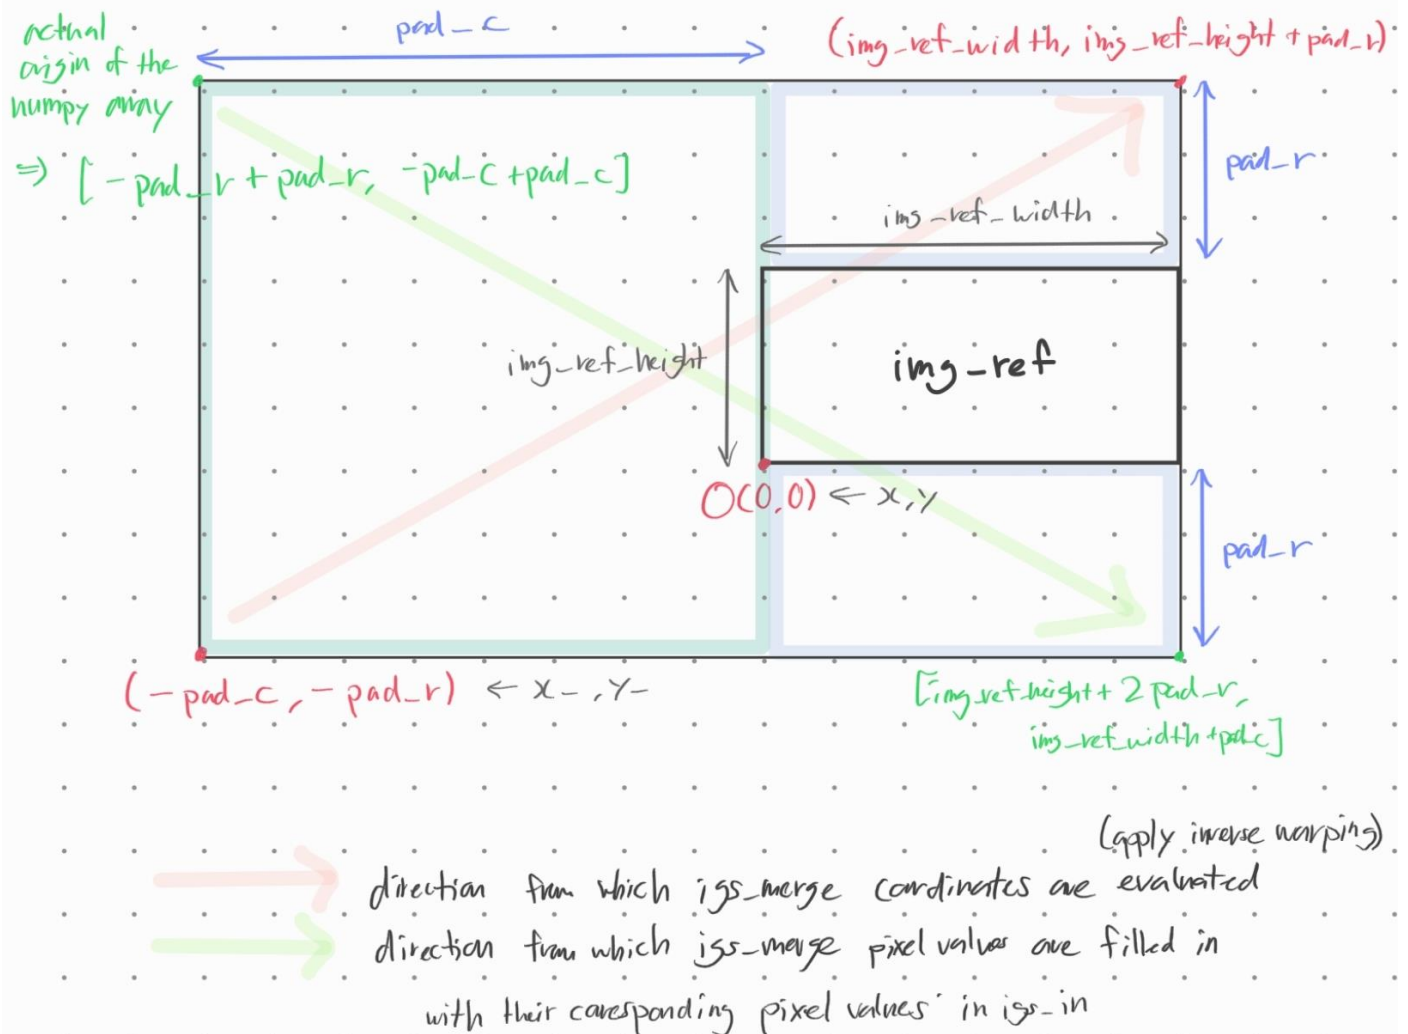 actual
origin of the
numpy array
⇒ [-pad_r + pad_r, -pad_c + pad_c]
pad_c
(img_ref_width, img_ref_height + pad_r)
pad_r
img_ref_width
img_ref_height
img_ref
O(0,0) ← x,y
pad_r
(-pad_c, -pad_r) ← x_, y_
[img_ref_height + 2pad_r,
img_ref_width + pad_c]
(apply inverse warping)
direction from which igs_merge coordinates are evaluated
direction from which igs_merge pixel values are filled in
with their corresponding pixel values in igs_in